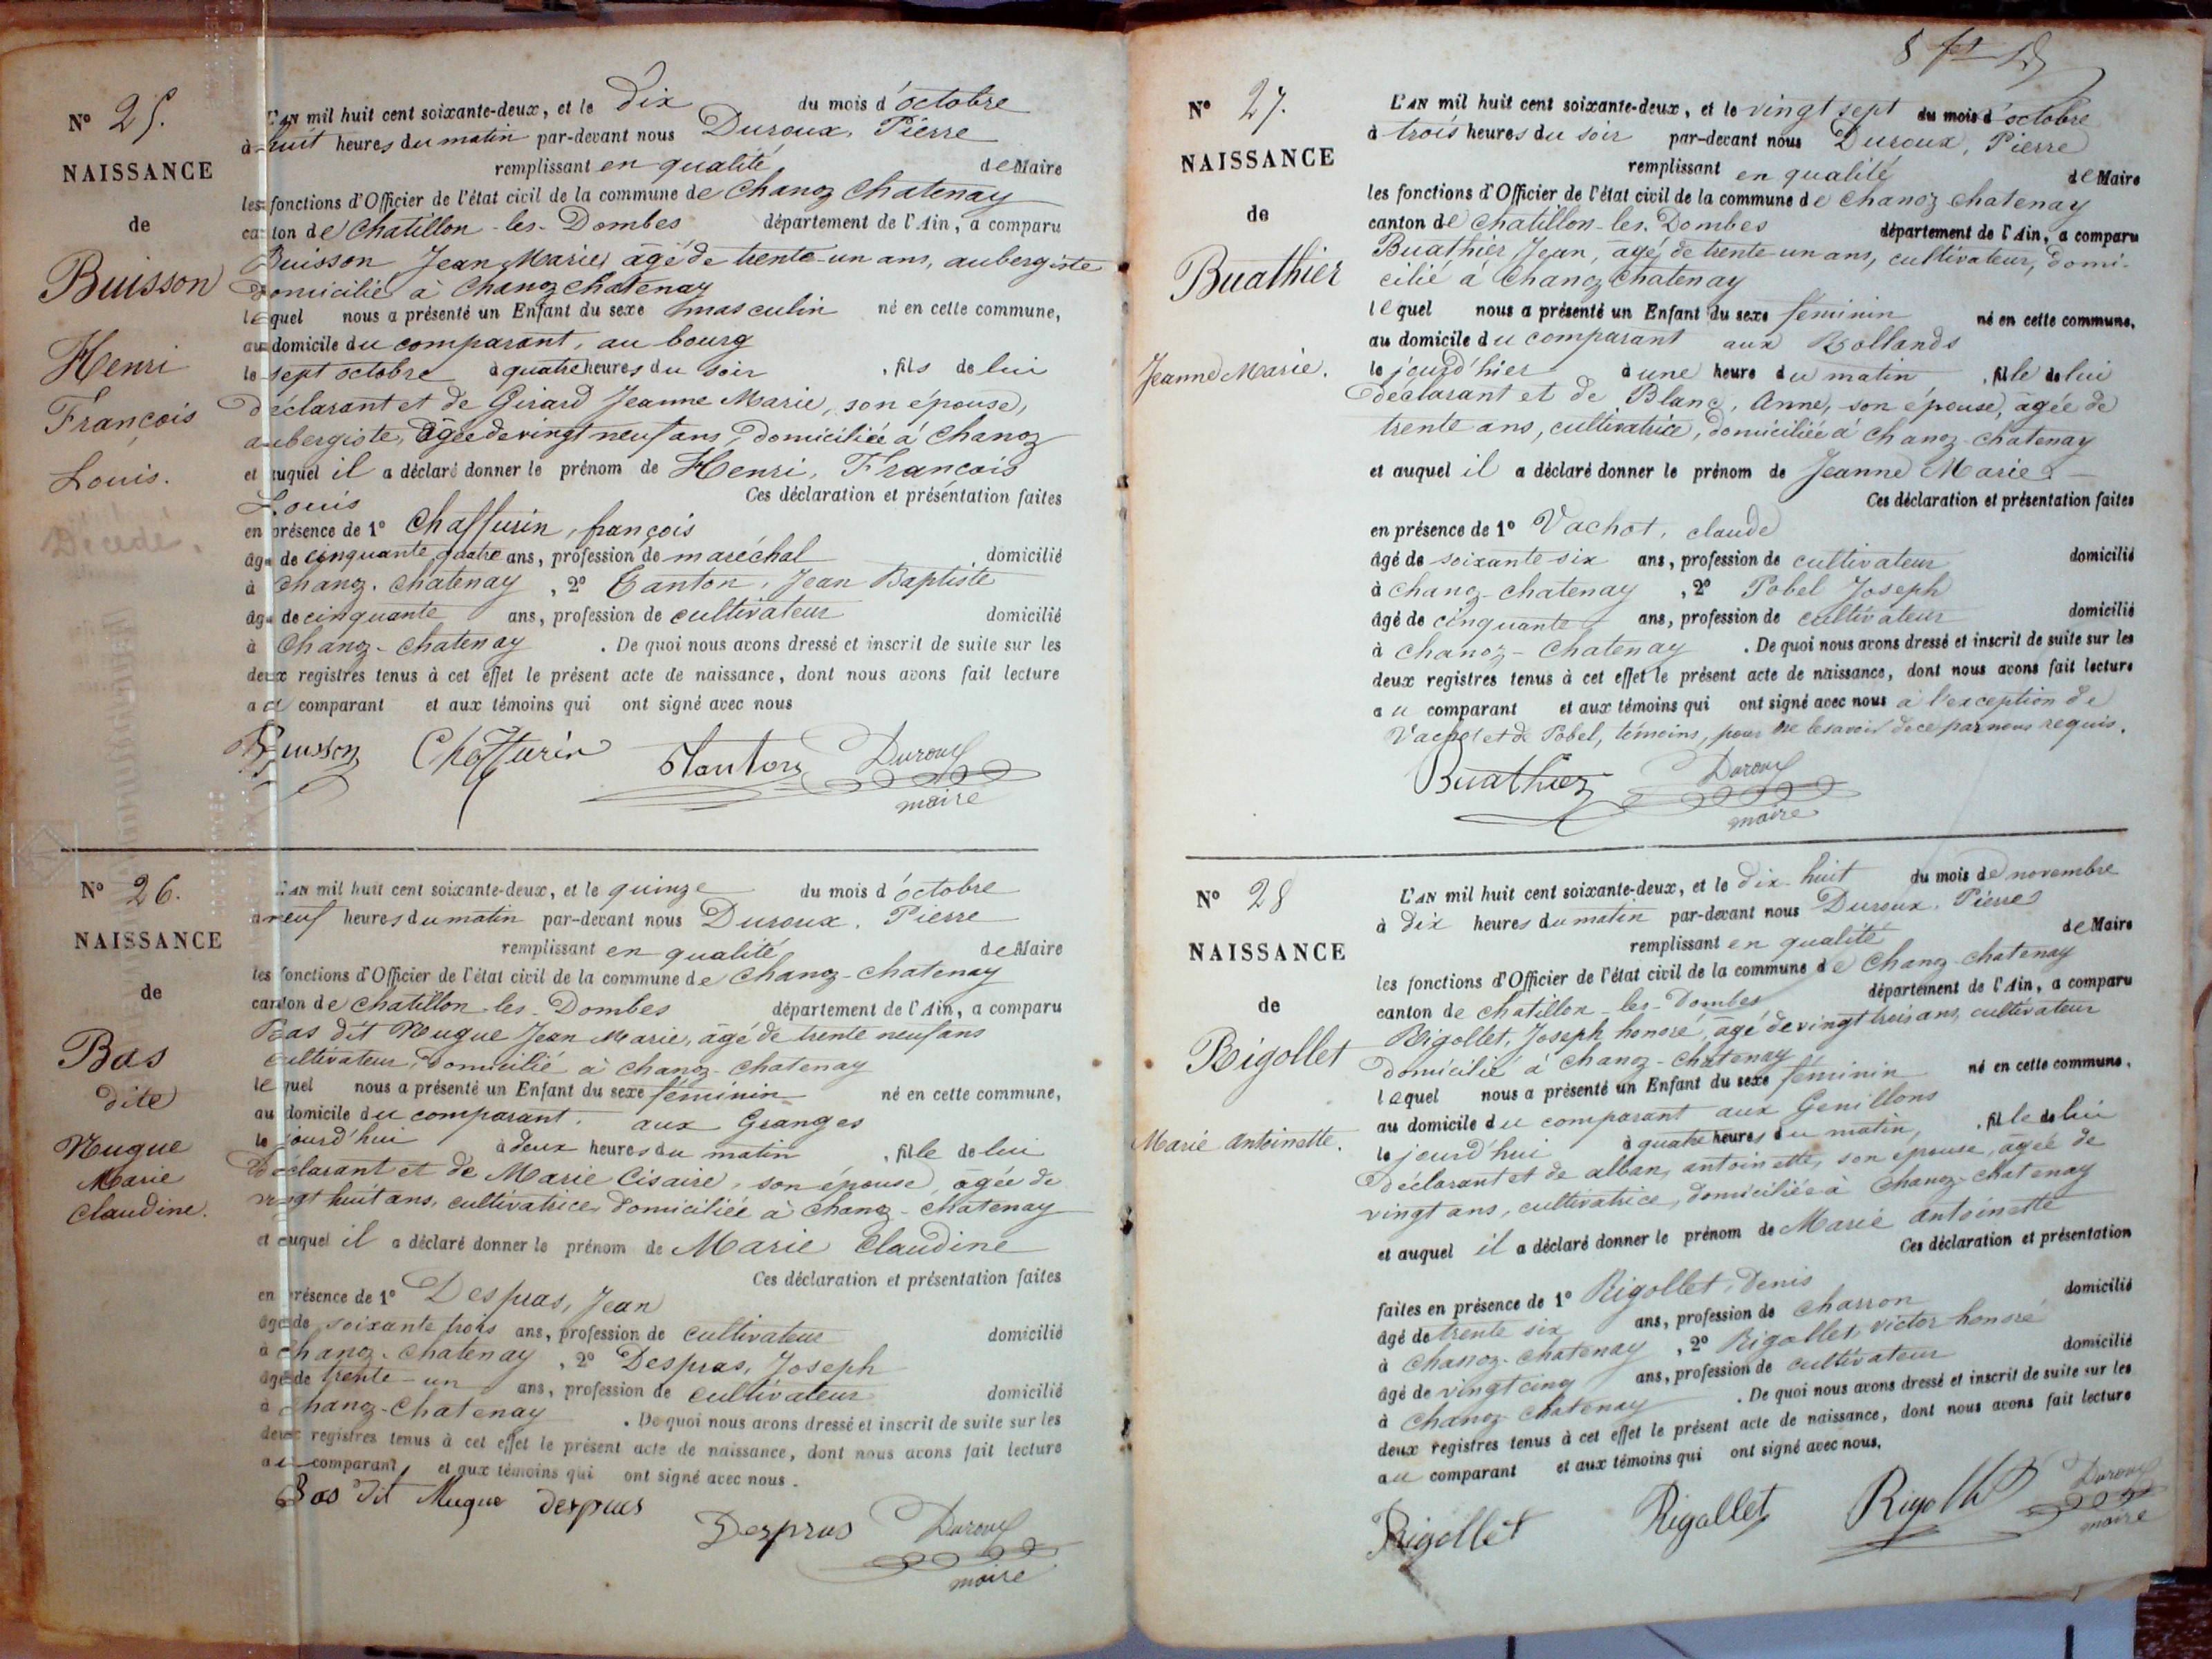 N° 25.
NAISSANCE
de
Buisson
Henri
François
Louis.
Décédé.
L'AN mil huit cent soixante-deux, et le dix du mois d'octobre
à huit heures du matin par-devant nous Duroux, Pierre
remplissant en qualité de Maire
les fonctions d'Officier de l'état civil de la commune de Chanoz Chatenay
canton de Chatillon-les-Dombes département de l'Ain, a comparu
Buisson Jean Marie, âgé de trente-un ans, aubergiste
domicilié à Chanoz Chatenay
lequel nous a présenté un Enfant du sexe masculin né en cette commune,
au domicile du comparant, au bourg
le sept octobre à quatre heures du soir, fils de lui
déclarant et de Girard Jeanne Marie, son épouse,
aubergiste, âgée de vingt neuf ans, domiciliée à Chanoz
et auquel il a déclaré donner le prénom de Henri, François
Louis Ces déclaration et présentation faites
en présence de 1° Chaffurin, françois
âgé de cinquante quatre ans, profession de maréchal domicilié
à Chanoz-Chatenay, 2° Tanton, Jean Baptiste
âgé de cinquante ans, profession de cultivateur domicilié
à Chanoz-Chatenay. De quoi nous avons dressé et inscrit de suite sur les
deux registres tenus à cet effet le présent acte de naissance, dont nous avons fait lecture
au comparant et aux témoins qui ont signé avec nous
Buisson Chaffurin Tanton Duroux
maire
N° 26.
NAISSANCE
de
Bas
dite
Nugue
Marie
Claudine.
L'AN mil huit cent soixante-deux, et le quinze du mois d'octobre
à neuf heures du matin par-devant nous Duroux, Pierre
remplissant en qualité de Maire
les fonctions d'Officier de l'état civil de la commune de Chanoz-Chatenay
canton de Chatillon-les-Dombes département de l'Ain, a comparu
Bas dit Nugue Jean Marie, âgé de trente neuf ans
cultivateur, domicilié à Chanoz-Chatenay
lequel nous a présenté un Enfant du sexe féminin né en cette commune,
au domicile du comparant, aux Granges
le jourd'hui à deux heures du matin, fille de lui
déclarant et de Marie Cisaire, son épouse, âgée de
vingt huit ans, cultivatrice, domiciliée à Chanoz-Chatenay
et auquel il a déclaré donner le prénom de Marie Claudine
Ces déclaration et présentation faites
en présence de 1° Despras, Jean
âgé de soixante trois ans, profession de cultivateur domicilié
à Chanoz-Chatenay, 2° Despras, Joseph
âgé de trente-un ans, profession de cultivateur domicilié
à Chanoz-Chatenay. De quoi nous avons dressé et inscrit de suite sur les
deux registres tenus à cet effet le présent acte de naissance, dont nous avons fait lecture
au comparant, et aux témoins qui ont signé avec nous.
Bas dit Nugue despras
Despras Duroux
maire
N° 27.
NAISSANCE
de
Buathier
Jeanne Marie.
L'AN mil huit cent soixante-deux, et le vingt sept du mois d'octobre
à trois heures du soir par-devant nous Duroux, Pierre
remplissant en qualité de Maire
les fonctions d'Officier de l'état civil de la commune de Chanoz-Chatenay
canton de Chatillon-les-Dombes département de l'Ain, a comparu
Buathier Jean, âgé de trente un ans, cultivateur, domi-
cilié à Chanoz Chatenay
lequel nous a présenté un Enfant du sexe féminin né en cette commune,
au domicile du comparant aux Rollands
le jourd'hier à une heure du matin, fille de lui
déclarant et de Blanc, Anne, son épouse, âgée de
trente ans, cultivatrice, domiciliée à Chanoz-Chatenay
et auquel il a déclaré donner le prénom de Jeanne Marie.
Ces déclaration et présentation faites
en présence de 1° Vachot, claude
âgé de soixante six ans, profession de cultivateur domicilié
à Chanoz-Chatenay, 2° Pobel Joseph
âgé de cinquante ans, profession de cultivateur domicilié
à Chanoz-Chatenay. De quoi nous avons dressé et inscrit de suite sur les
deux registres tenus à cet effet le présent acte de naissance, dont nous avons fait lecture
au comparant et aux témoins qui ont signé avec nous à l'exception de
Vachot et de Pobel, témoins, pour ne le savoir de ce par nous requis.
Buathier Duroux
maire
N° 28
NAISSANCE
de
Rigollet
Marie Antoinette.
L'AN mil huit cent soixante-deux, et le dix-huit du mois de novembre
à dix heures du matin par-devant nous Duroux, Pierre
remplissant en qualité de Maire
les fonctions d'Officier de l'état civil de la commune de Chanoz-Chatenay
canton de Chatillon-les-Dombes département de l'Ain, a comparu
Rigollet, Joseph honoré, âgé de vingt trois ans, cultivateur
domicilié à Chanoz-Chatenay
lequel nous a présenté un Enfant du sexe féminin né en cette commune,
au domicile du comparant aux Genillons
le jourd'hui à quatre heures du matin, fille de lui
déclarant et de alban, antoinette, son épouse, âgée de
vingt ans, cultivatrice, domiciliée à Chanoz-Chatenay
et auquel il a déclaré donner le prénom de Marie antoinette
Ces déclaration et présentation
faites en présence de 1° Rigollet, Denis domicilié
âgé de trente six ans, profession de Charron
à Chanoz-Chatenay, 2° Rigollet, victor honoré
âgé de vingt cinq ans, profession de cultivateur domicilié
à Chanoz-Chatenay. De quoi nous avons dressé et inscrit de suite sur les
deux registres tenus à cet effet le présent acte de naissance, dont nous avons fait lecture
au comparant et aux témoins qui ont signé avec nous.
Rigollet Rigollet Rigollet Duroux
maire